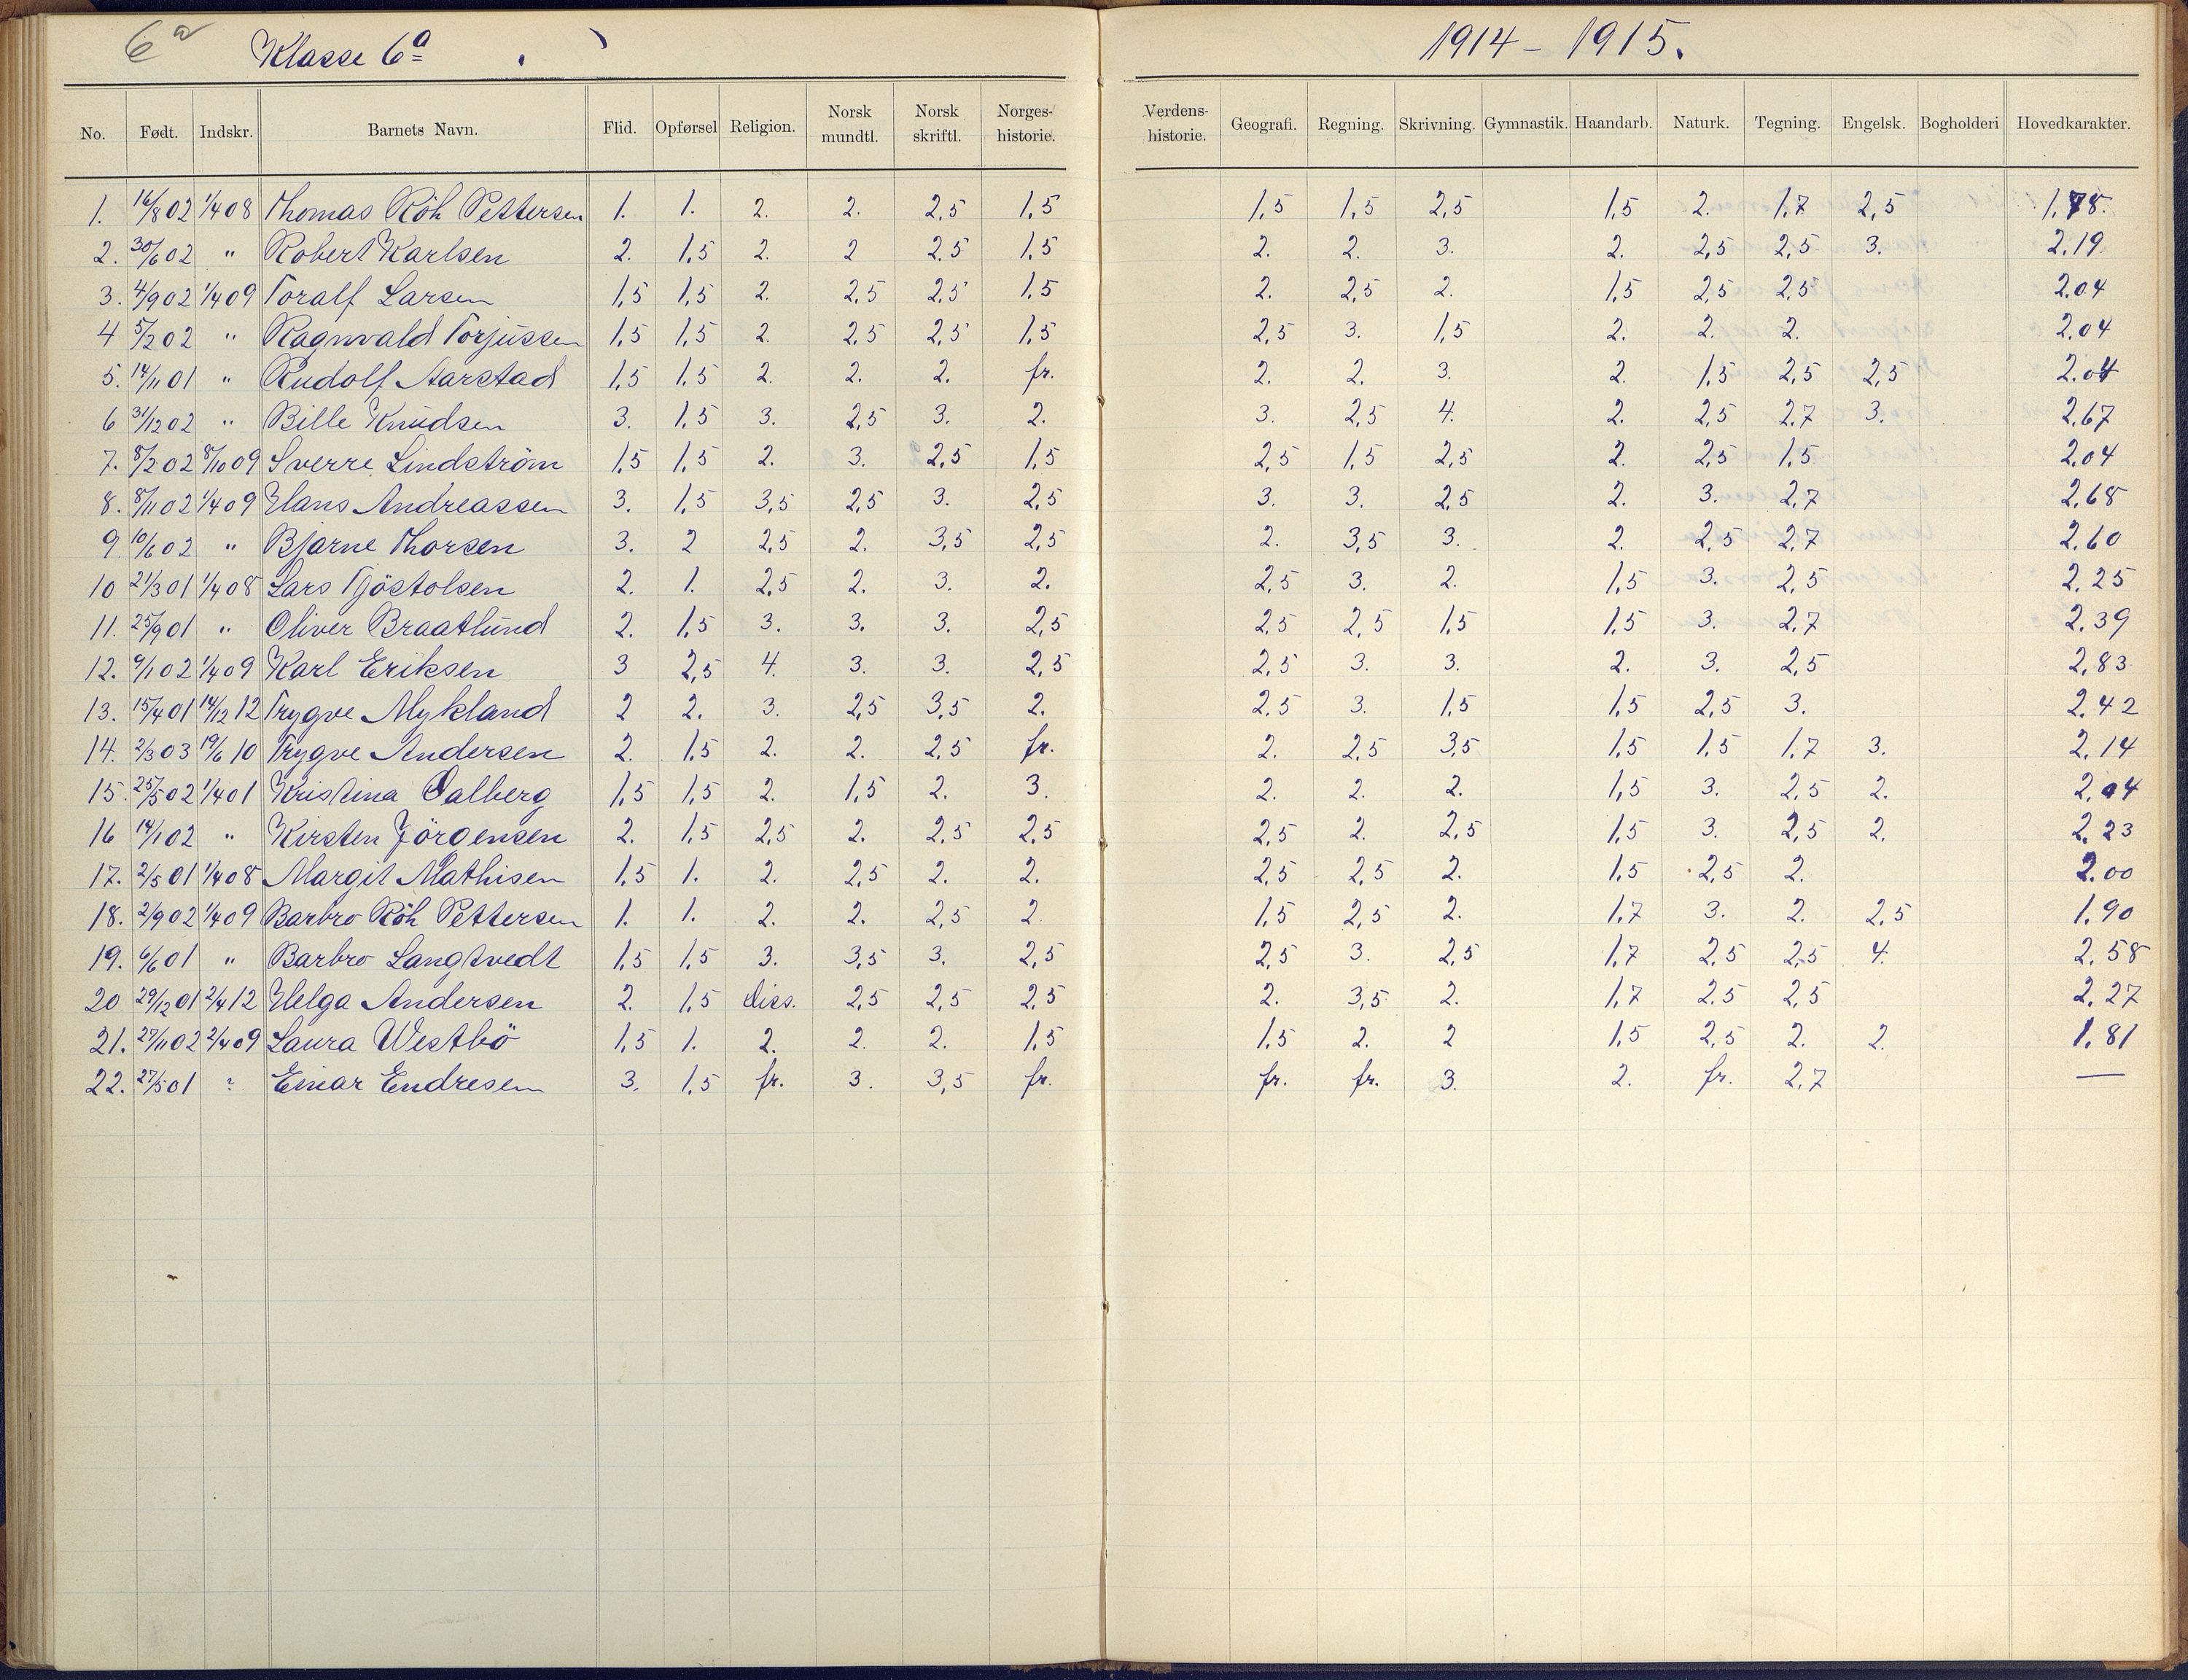 6a Klasse 6a 1914 - 1915.
No. Født. Indskr. Barnets Navn. Flid. Opførsel Religion. Norsk mundtl. Norsk skriftl. Norges-historie. Verdens-historie. Geografi. Regning. Skrivning. Gymnastik. Haandarb. Naturk. Tegning. Engelsk. Bogholderi Hovedkarakter.
1. 16/8 02 1/4 08 Thomas Röh Pettersen 1. 1. 2. 2. 2,5 1,5 1,5 1,5 2,5 1,5 2. 1,7 2,5 1,78.
2. 30/6 02 " Robert Karlsen 2. 1,5 2. 2 2,5 1,5 2. 2. 3. 2. 2,5 2,5 3. 2.19
3. 4/9 02 1/4 09 Toralf Larsen 1,5 1,5 2. 2,5 2,5 1,5 2. 2,5 2. 1,5 2,5 2,5 2.04
4 5/2 02 " Ragnvald Torjussen 1,5 1,5 2. 2,5 2,5 1,5 2,5 3. 1,5 2. 2. 2. 2.04
5. 14/11 01 " Rudolf Aarstad 1,5 1,5 2. 2. 2. fr. 2. 2. 3. 2. 1,5 2,5 2,5 2.04
6 31/12 02 " Bille Knudsen 3. 1,5 3. 2,5 3. 2. 3. 2,5 4. 2. 2,5 2,7 3. 2,67
7. 8/2 02 8/10 09 Sverre Lindström 1,5 1,5 2. 3. 2,5 1,5 2,5 1,5 2,5 2. 2,5 1,5 2,04
8. 8/11 02 1/4 09 Hans Andreassen 3. 1,5 3,5 2,5 3. 2,5 3. 3. 2,5 2. 3. 2,7 2,68
9 10/6 02 " Bjarne Thorsen 3. 2 2,5 2. 3,5 2,5 2. 3,5 3. 2. 2,5 2,7 2.60
10 21/3 01 1/4 08 Lars Tjöstolsen 2. 1. 2,5 2. 3. 2. 2,5 3. 2. 1,5 3. 2,5 2,25
11. 25/9 01 " Oliver Braatlund 2. 1,5 3. 3. 3. 2,5 2,5 2,5 1,5 1,5 3. 2,7 2.39
12. 9/1 02 1/4 09 Karl Eriksen 3 2,5 4. 3. 3. 2,5 2,5 3. 3. 2. 3. 2,5 2,83
13. 15/4 01 14/12 12 Trygve Mykland 2 2. 3. 2,5 3,5 2. 2.5 3. 1,5 1,5 2,5 3. 2.42
14. 2/3 03 19/6 10 Trygve Andersen 2. 1,5 2. 2. 2,5 fr. 2. 2,5 3,5 1,5 1,5 1,7 3. 2.14
15. 25/5 02 1/4 01 Kristina Dalberg 1,5 1,5 2. 1,5 2. 3. 2. 2. 2. 1,5 3. 2,5 2. 2,04
16 14/1 02 " Kirsten Jörgensen 2. 1,5 2,5 2. 2,5 2,5 2,5 2. 2,5 1,5 3. 2,5 2. 2.23
17. 2/5 01 1/4 08 Margit Mathisen 1,5 1. 2. 2,5 2. 2. 2,5 2,5 2. 1,5 2,5 2. 2.00
18. 2/9 02 1/4 09 Barbro Röh Pettersen 1. 1. 2. 2. 2,5 2 1,5 2,5 2. 1,7 3. 2. 2,5 1.90
19. 6/6 01 " Barbro Langtvedt 1,5 1,5 3. 3,5 3. 2,5 2,5 3. 2,5 1,7 2,5 2,5 4. 2.58
20 29/12 01 2/4 12 Helga Andersen 2. 1,5 diss. 2,5 2,5 2,5 2. 3,5 2. 1,7 2.5 2,5 2,27
21. 27/11 02 2/4 09 Laura Westbö 1,5 1. 2. 2. 2. 1,5 1,5 2. 2 1,5 2,5 2. 2. 1.81
22. 27/5 01 ? Einar Endresen 3. 1,5 fr. 3. 3,5 fr. fr. fr. 3. 2. fr. 2,7 —